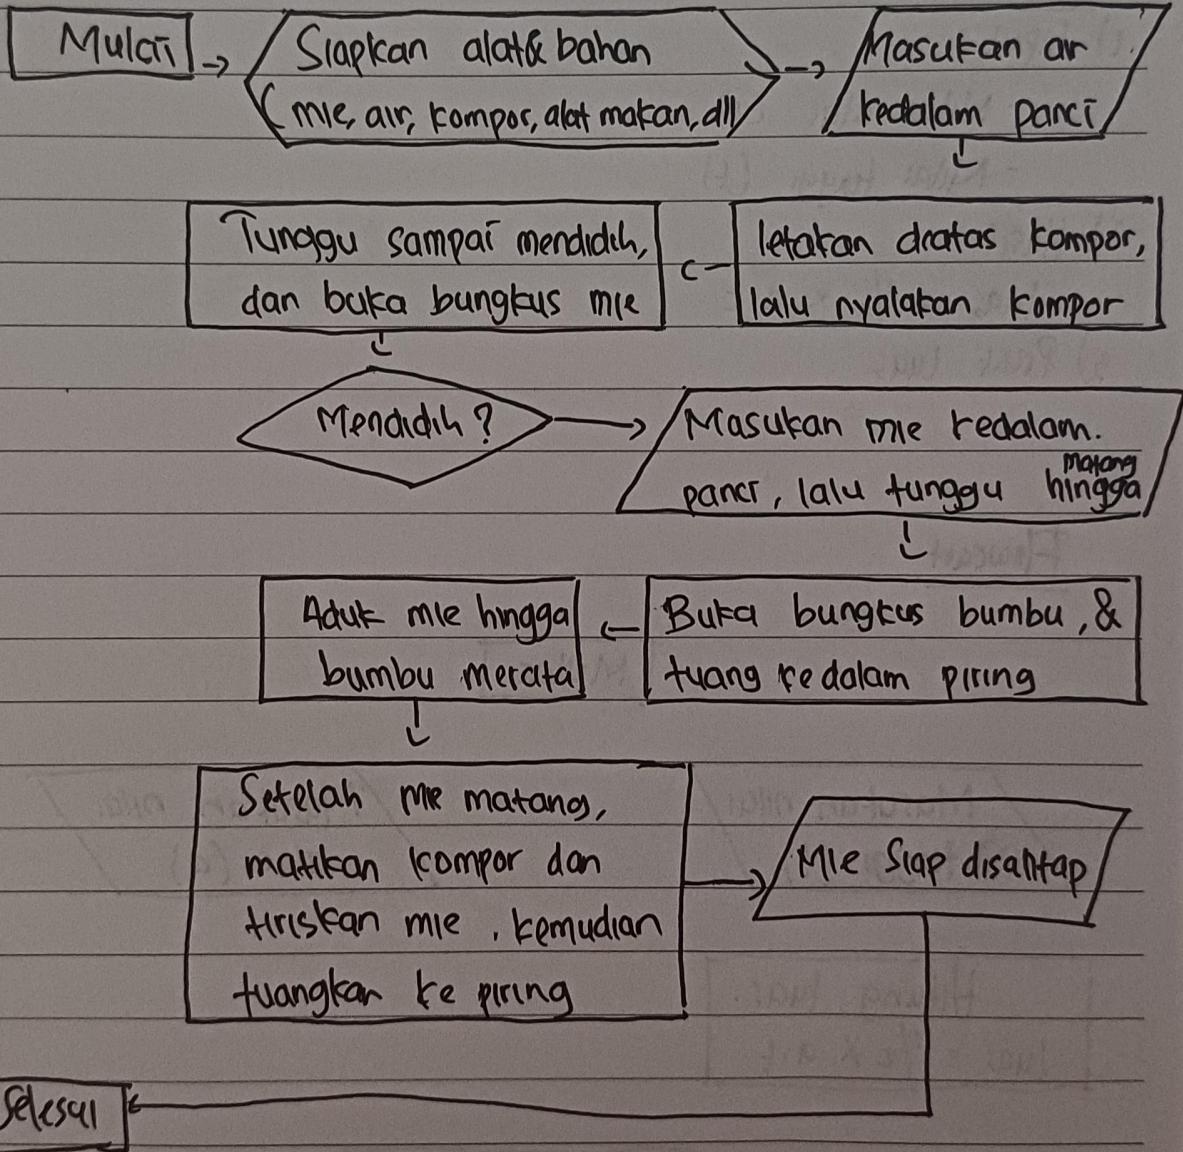 Mulai
Siapkan alat & bahan
(mie, air, kompor, alat makan, dll)
Masukan air
kedalam panci
letakan diatas kompor,
lalu nyalakan kompor
Tunggu sampai mendidih,
dan buka bungkus mie
Mendidih?
Masukan mie kedalam.
panci, lalu tunggu hingga
matang
Buka bungkus bumbu, &
tuang kedalam piring
Aduk mie hingga
bumbu merata
Setelah mie matang,
matikan kompor dan
tiriskan mie, kemudian
tuangkan ke piring
Mie siap disantap
Selesai